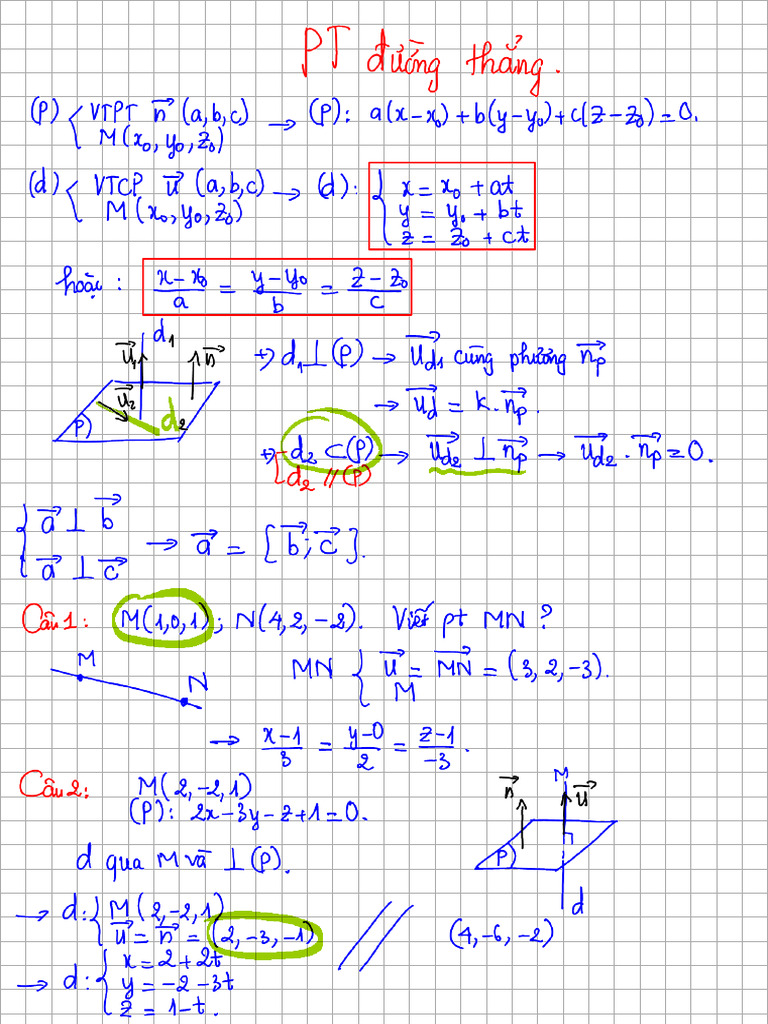 PT đường thẳng.
(P) { VTPT n⃗ (a,b,c) → (P): a(x-x₀)+b(y-y₀)+c(z-z₀)=0.
M(x₀,y₀,z₀)
(d) { VTCP u⃗ (a,b,c) → (d): { x = x₀ + at
M(x₀,y₀,z₀) y = y₀ + bt
z = z₀ + ct
hoặc: (x-x₀)/a = (y-y₀)/b = (z-z₀)/c
d₁ u⃗₁ n⃗
u⃗₂ P) d₂
+) d₁⊥(P) → u⃗d₁ cùng phương n⃗p
→ u⃗d = k.n⃗p.
+) [ d₂ ⊂ (P) → u⃗d₂ ⊥ n⃗p → u⃗d₂ . n⃗p = 0.
d₂ // (P)
{ a⃗ ⊥ b⃗
a⃗ ⊥ c⃗ → a⃗ = [b⃗; c⃗].
Câu 1: M(1,0,1); N(4,2,-2). Viết pt MN?
M N
MN { u⃗ = MN⃗ = (3,2,-3).
M
→ (x-1)/3 = (y-0)/2 = (z-1)/-3.
Câu 2: M(2,-2,1)
(P): 2x-3y-z+1=0.
n⃗ M u⃗
P)
d
d qua M và ⊥(P).
→ d: { M(2,-2,1)
u⃗ = n⃗ = (2,-3,-1) // (4,-6,-2)
→ d: { x = 2+2t
y = -2-3t
z = 1-t.